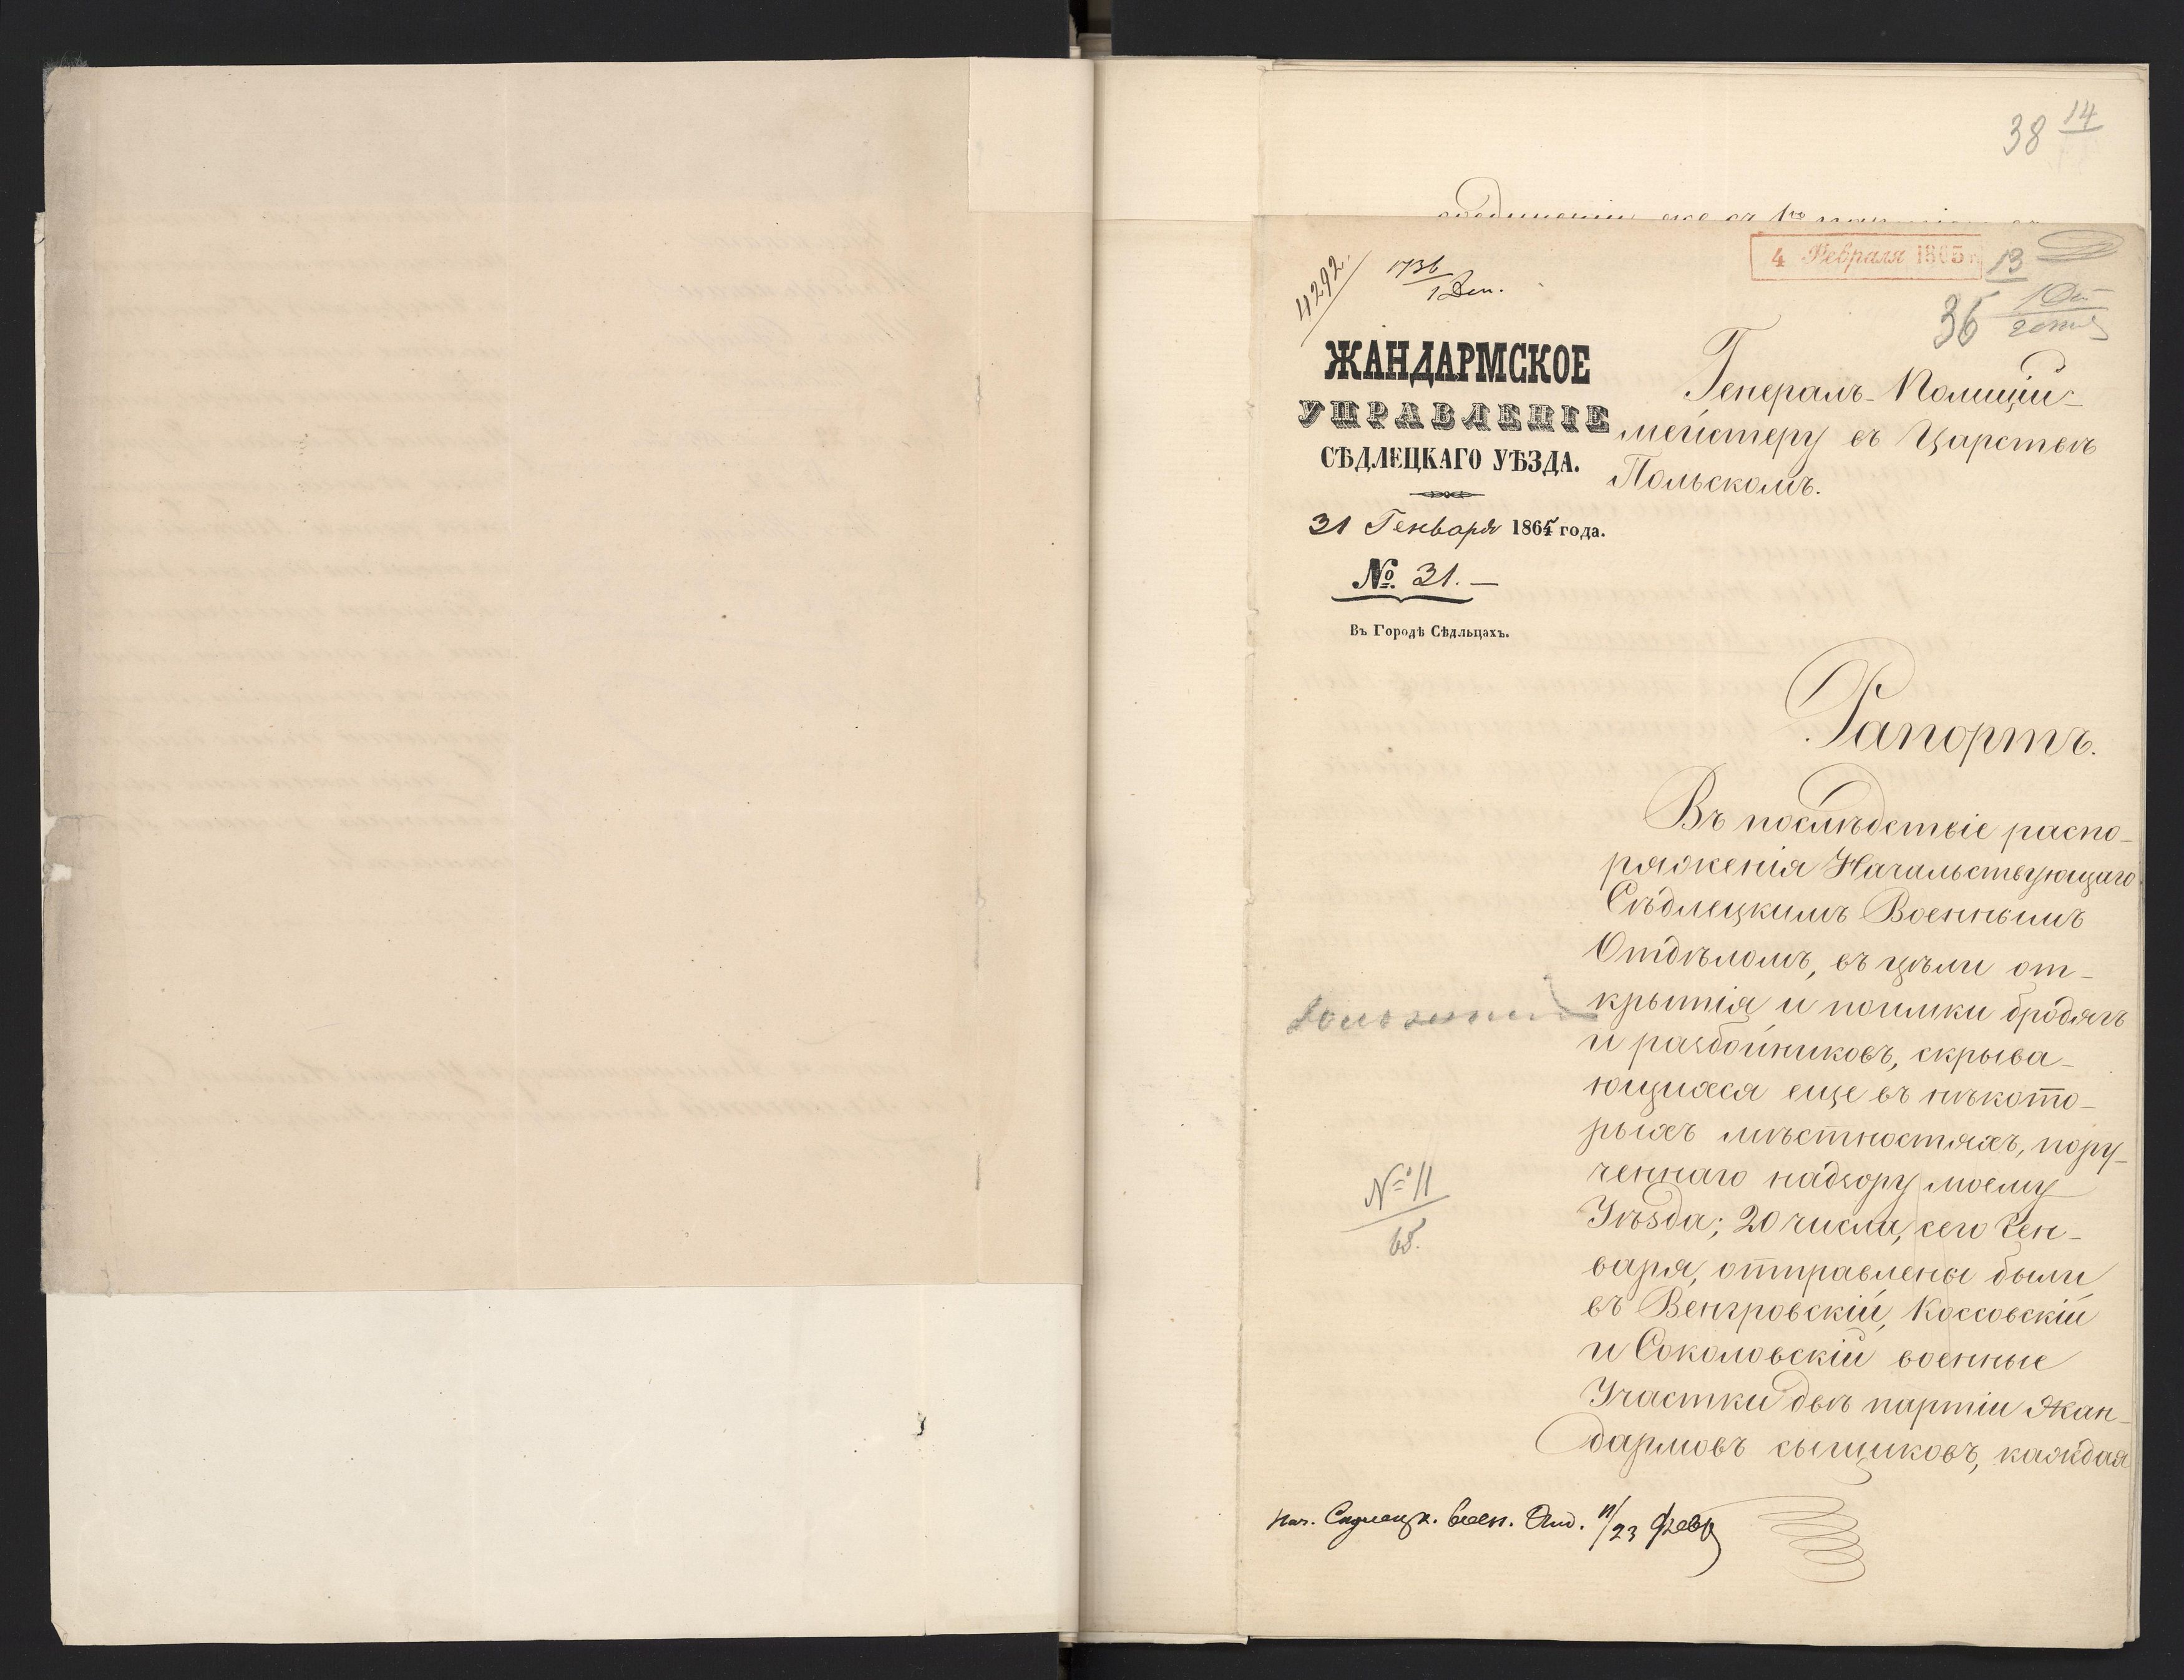 38 14
4 Февраля 1865 г.
13
4292.
1736
1 Деп.
36
ЖАНДАРМСКОЕ
УПРАВЛЕНІЕ
СѢДЛЕЦКАГО УѢЗДА.
31 Генваря 1865 года.
№ 31.—
Въ Городѣ Сѣдльцахъ.
Генералъ-Полиціи-
мейстеру въ Царствѣ
Польскомъ.
Рапортъ.
Въ послѣдствіе распо-
ряженія Начальствующаго
Сѣдлецкимъ Военнымъ
Отдѣломъ, въ цѣли от-
крытія и поимки бродягъ
и разбойниковъ, скрыва-
ющихся еще въ нѣкото-
рыхъ мѣстностяхъ, пору-
ченнаго надзору моему
Уѣзда; 20 числа, сего Ген-
варя, отправлены были
въ Венгровскій, Коссовскій
и Соколовскій военные
Участки двѣ партіи Жан-
дармовъ сыщиковъ, каждая
№ 11
65.
Нач. Сѣдлецк. Воен. Отд. 11/23 Февр